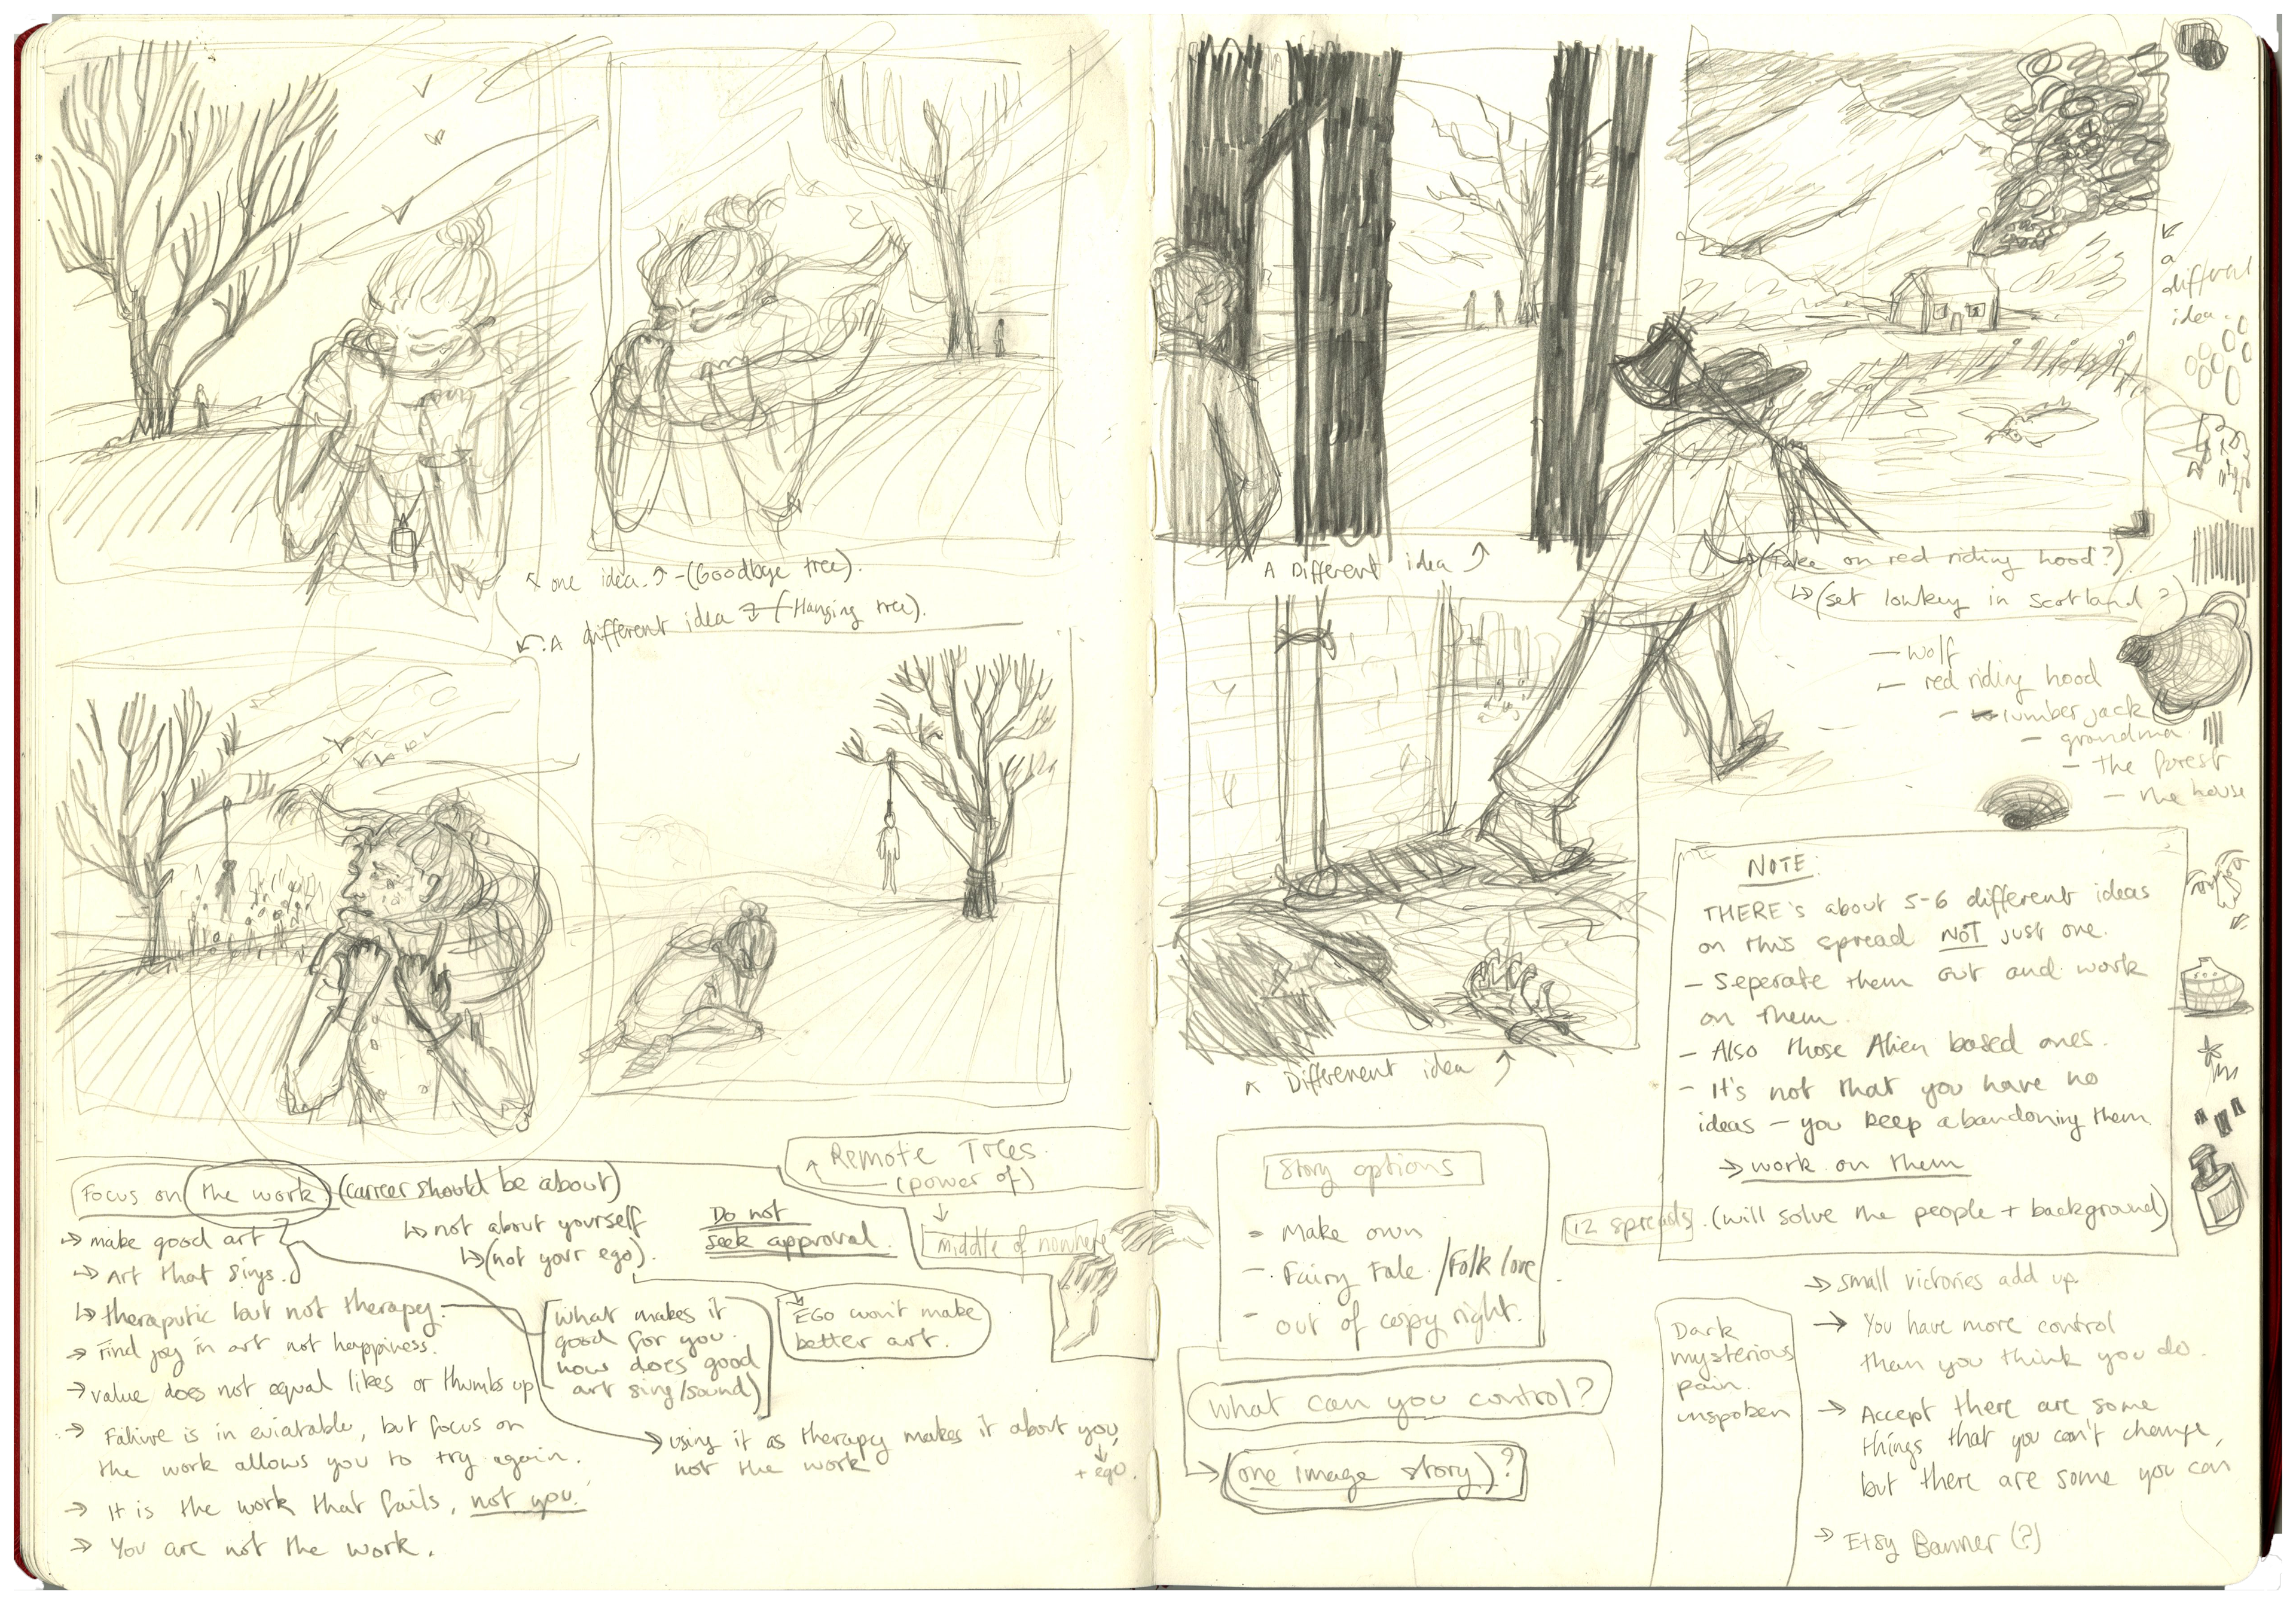 ↖ one idea ↗ - (Goodbye tree).
↙ A different idea → (Hanging tree).
Remote Trees
(power of)
↓
middle of nowhere
Focus on the work (carrer should be about)
→ make good art
→ Art that sings.
↳ theraputic but not therapy.
→ Find joy in art not happiness.
→ value does not equal likes or thumbs up
→ Failure is in eviatable, but focus on
the work allows you to try again.
→ It is the work that fails, not you.
→ You are not the work.
↳ not about yourself
↳ (not your ego).
Do not
seek approval.
(what makes it
good for you.
how does good
art sing/sound)
EGO won't make
better art.
→ using it as therapy makes it about you,
not the work
+ ego.
A Different idea ↗
a
different
idea.
(take on red riding hood?)
↳ (set lowkey in Scotland?)
- wolf
- red riding hood
- lumberjack
- grandma
- the forest
- the house
↖ Different idea ↗
NOTE:
THERE's about 5-6 different ideas
on this spread NOT just one.
- Seperate them out and work
on them.
- Also those Alien based ones.
- It's not that you have no
ideas - you keep abandoning them
→ work on them
12 spreads. (will solve the people + background)
Story options
- Make own
- Fairy Tale /Folk lore
- out of copy right.
What can you control?
→ (one image story)?
Dark
mysterious
pain.
unspoken
→ small victories add up.
→ You have more control
than you think you do.
→ Accept there are some
things that you can't change,
but there are some you can
→ Etsy Banner (?)